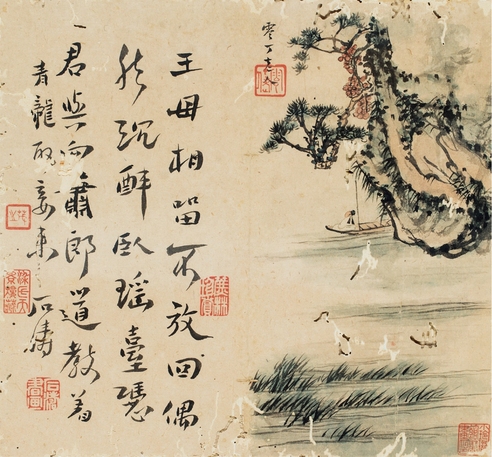 零丁老人
王母相留不放回偶
然沉醉臥瑤臺憑
君與向蕭郎道教着
青龍取妾來 石濤